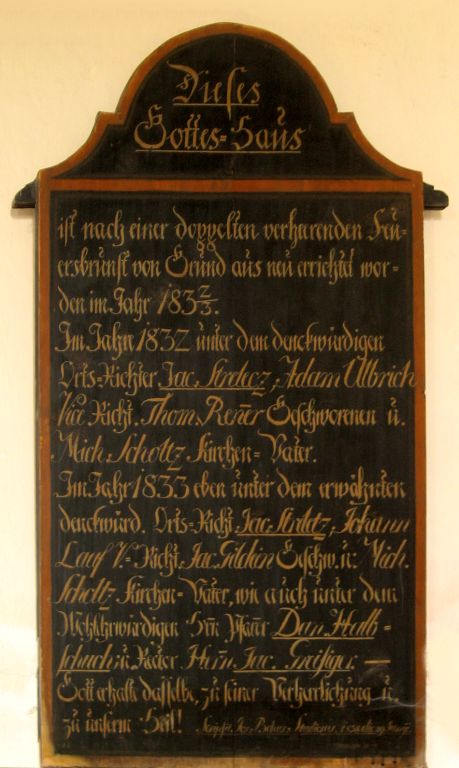 Dieses
Gottes-Haus
ist nach einer doppelten verheerenden Feu-
ersbrunst von Grund aus neu errichtet wor-
den im Jahr 183 2/3.
Im Jahre 1832 unter dem denckwürdigen
Orts-Richter Jac. Strelecz, Adam Ulbrich
Vice Richt. Thom. Rener Geschworenen u.
Mich Scholtz Kirchen-Vater.
Im Jahr 1833 eben unter dem erwähnten
denckwürd. Orts-Richt. Jac. Johann
Laaf V.-Richt. Jac. Geschw. u. Mich.
Scholtz Kirchen-Vater, wie auch unter dem
Wohlehrwürdigen Hrn Pfarrer Dan.
u. Rector Herrn Jac. Greisiger. —
Gott erhalte dasselbe, zu seiner Verherrlichung u.
zu unserm Heil!